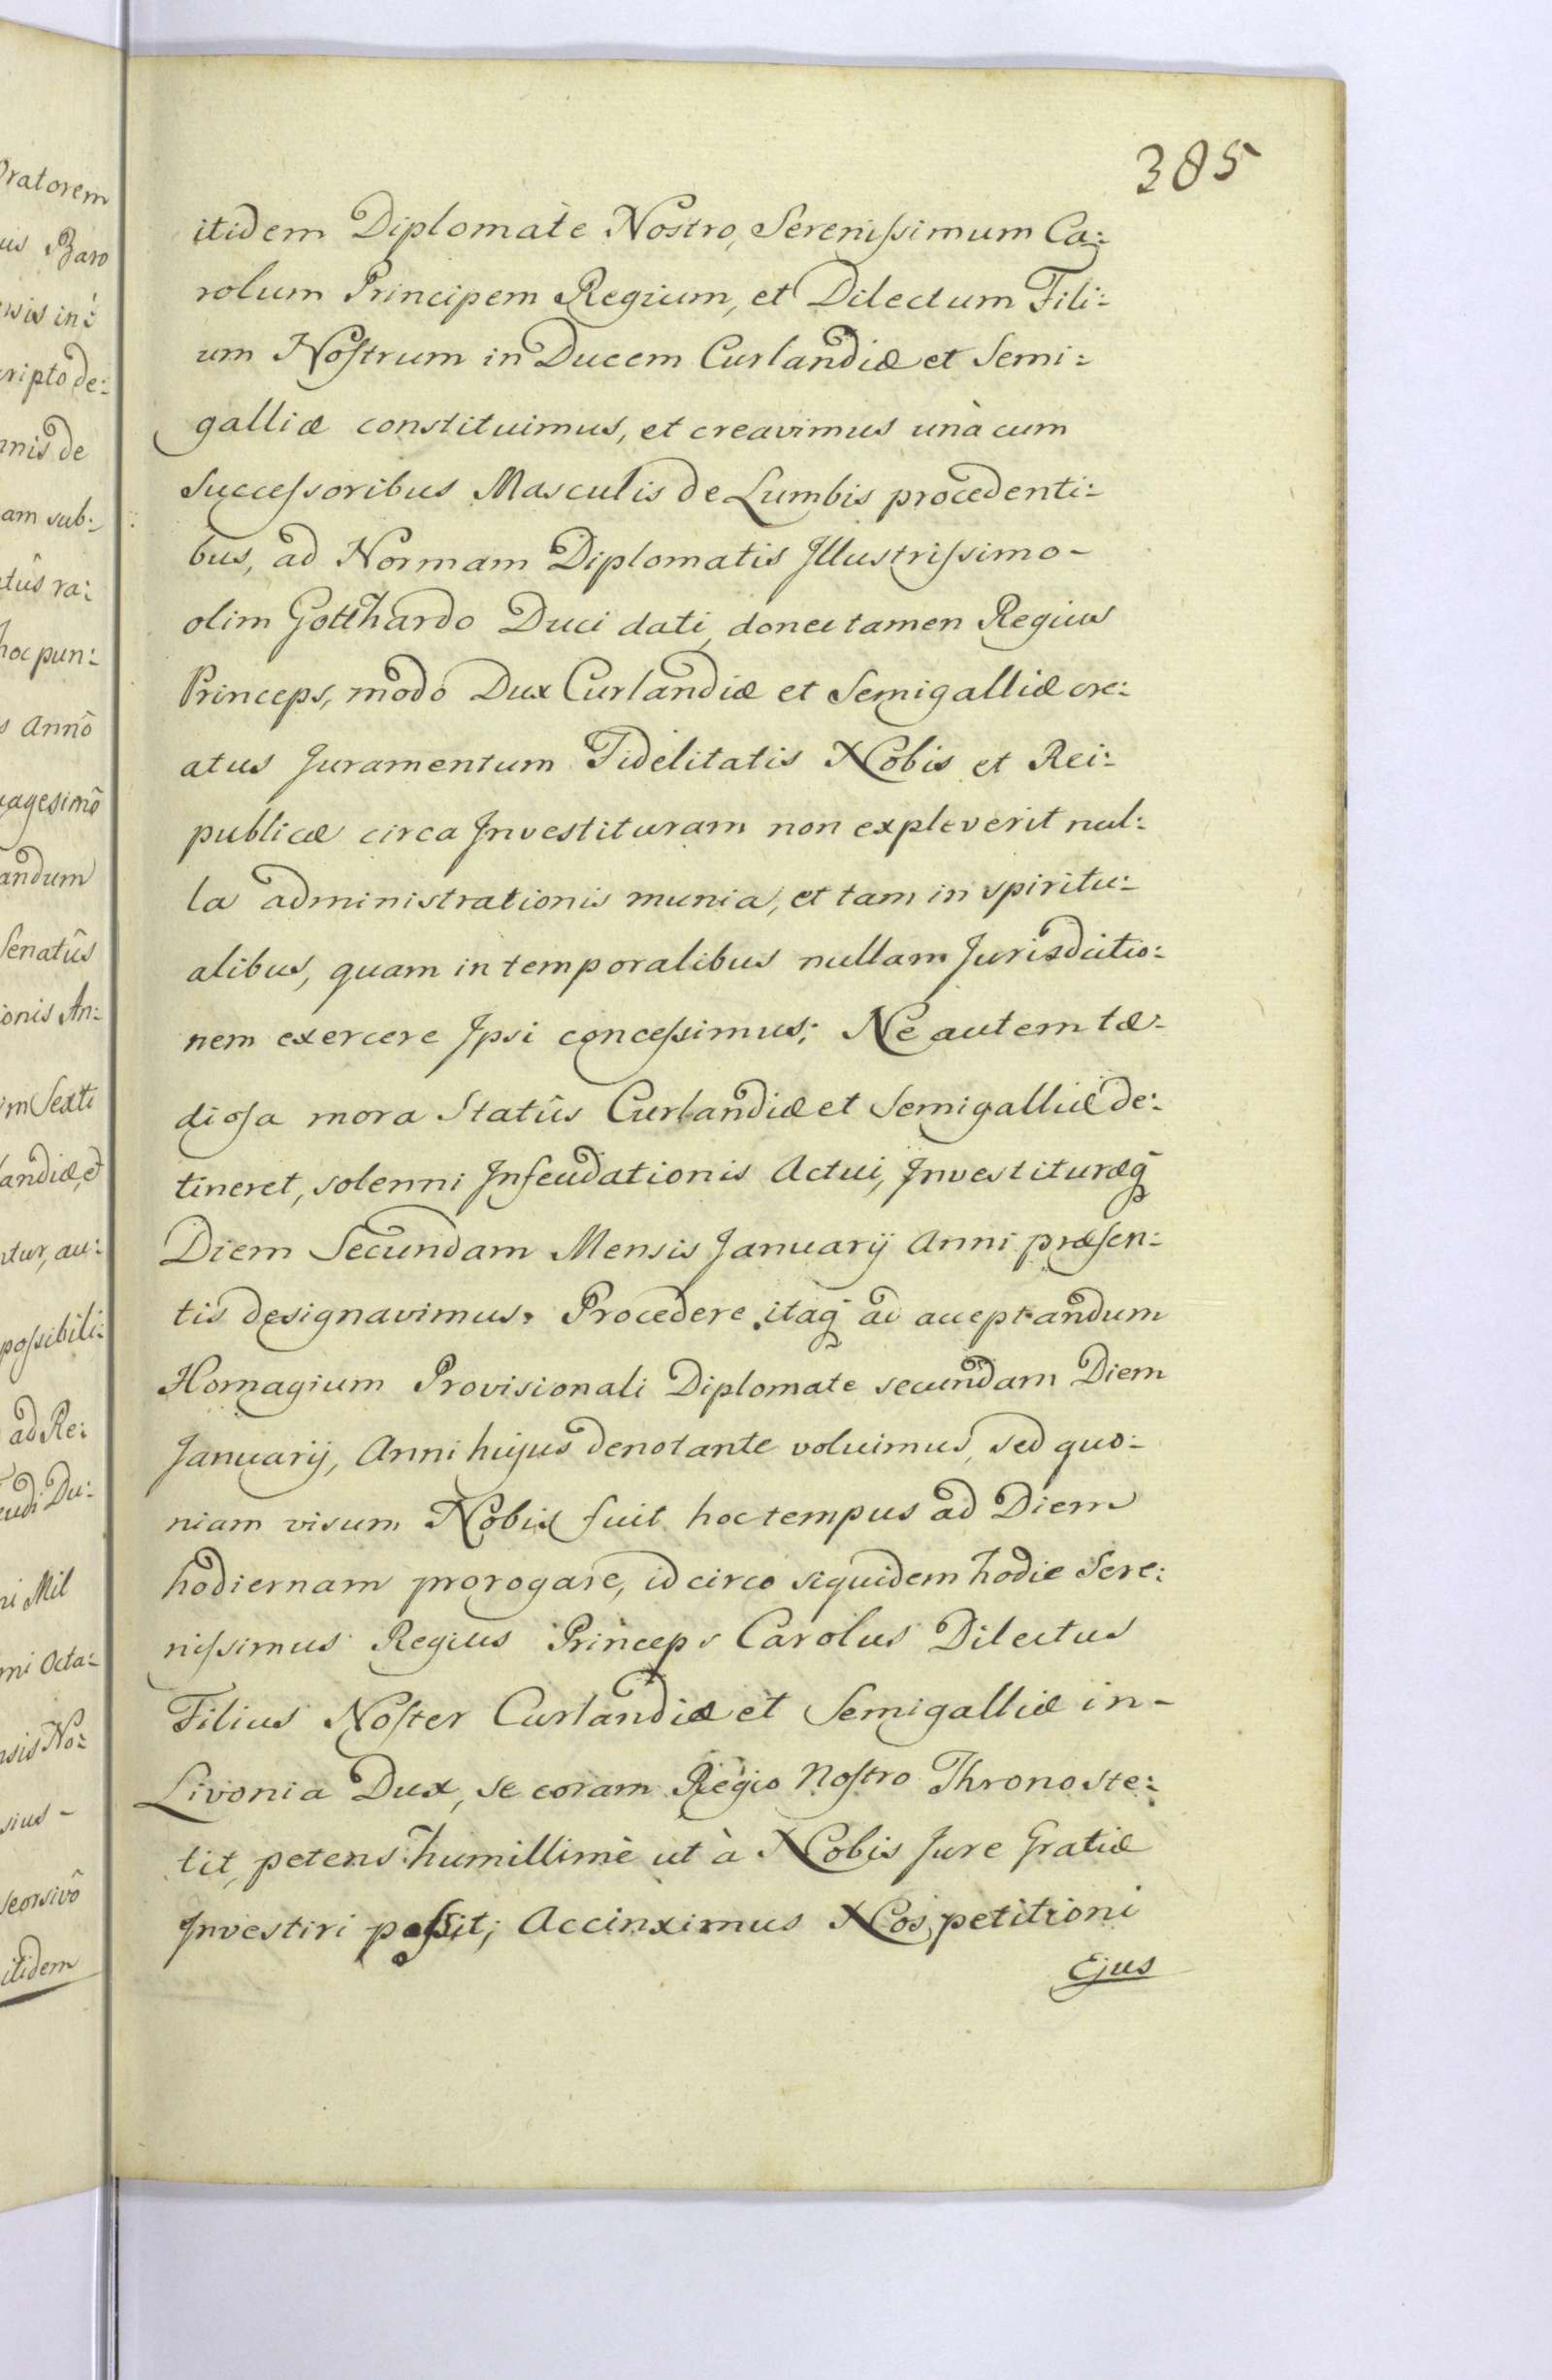 385
itidem Diplomate Nostro, Serenißimum Ca:
rolum Principem Regium, et Dilectum Fili:
um Nostrum in Ducem Curlandiæ et Semi:
galliæ constituimus, et creavimus unà cum
Successoribus Masculis de Lumbis procedenti:
bus, ad Normam Diplomatis Illustrissimo-
olim Gotthardo Duci dati, donec tamen Regius
Princeps, modo Dux Curlandiæ et Semigalliæ cre:
atus Juramentum Fidelitatis Nobis et Rei:
publicæ circa Investituram non expleverit nul:
la administrationis munia, et tam in spiritu:
alibus, quam in temporalibus nullam Jurisdictio:
nem exercere Ipsi conceßimus; Ne autem tæ:
diosa mora Statûs Curlandiæ et Semigalliæ de:
tineret, solenni Infeudationis Actui, Investituræq̃
Diem Secundam Mensis Januarij Anni præsen:
tis designavimus. Procedere itaq̃ ad acceptandum
Homagium Provisionali Diplomate secundam Diem
Januarij, Anni hujus denotante voluimus, sed quo:
niam visum Nobis fuit hoc tempus ad Diem
hodiernam prorogare, idcirco siquidem hodie Sere:
nissimus Regius Princeps Carolus Dilectus
Filius Noster Curlandiæ et Semigalliæ in-
Livonia Dux, se coram Regio Nostro Throno ste:
tit, petens humillimè ut à Nobis Jure Gratiæ
Investiri poßit; Accinximus Nos petitioni
Ejus
Oratorem
us Baro
nsis in:
cripto de:
nnis de
am sub:
tûs ra:
hoc pun:
s Annô
uagesimô
andum
Senatûs
ionis An:
m Sexti
landiæ, et
ntur, au:
possibili:
ad Re:
eudi Du:
ni Mil
mi Octa:
nsis No:
sius -
seorsivô
itidem